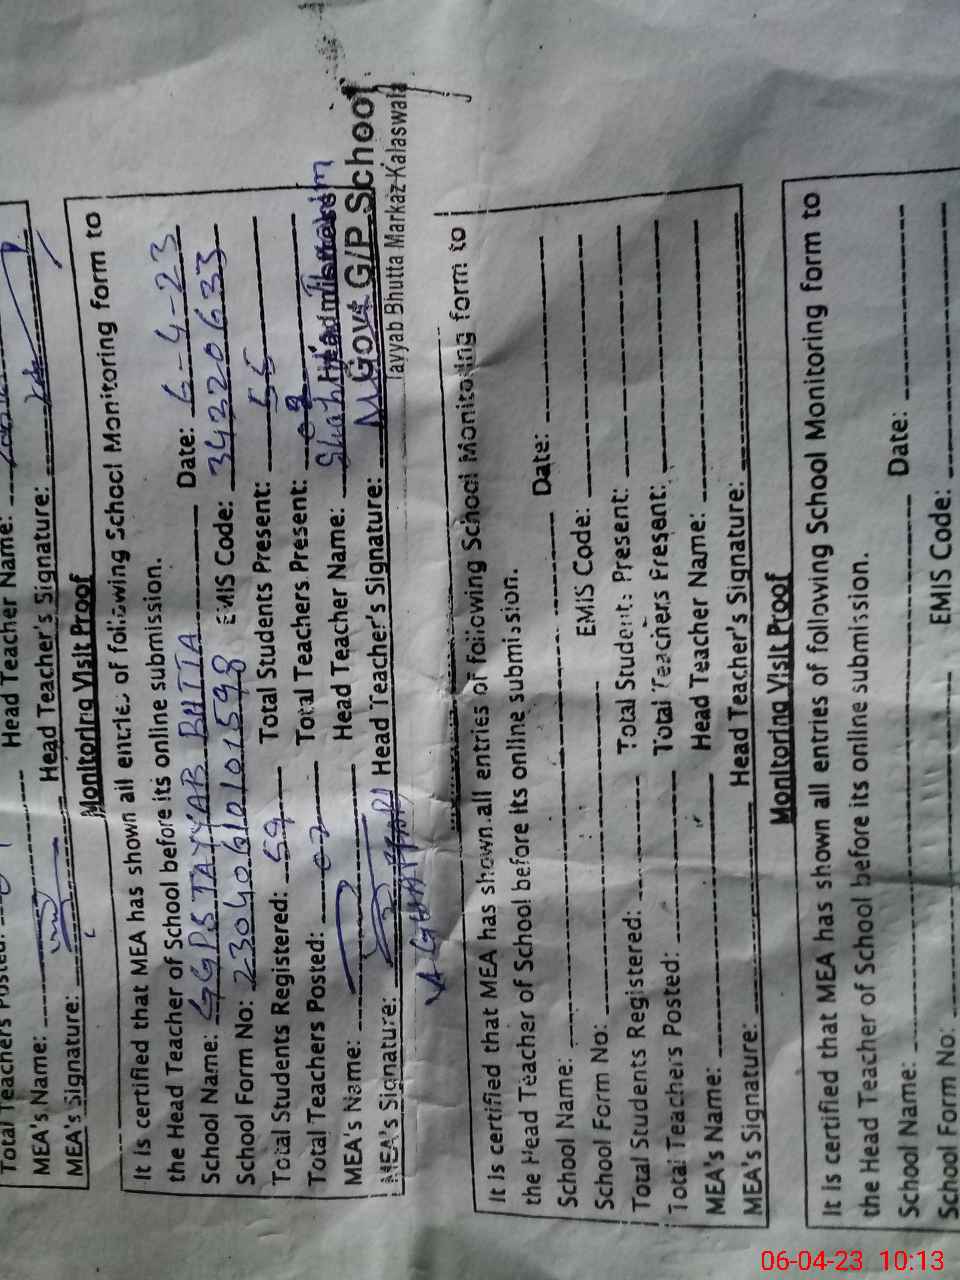 Total Teachers Posted:
Head Teacher Name:
MEA's Name:
Head Teacher's Signature:
MEA's Signature:
Monitoring Visit Proof
It is certified that MEA has shown all entries of following School Monitoring form to
the Head Teacher of School before its online submission.
School Name: GGPS TAYYAB BHTTA Date: 6-4-23
School Form No: 23040610101598 EMIS Code: 34320633
Total Students Registered: 59 Total Students Present: 55
Total Teachers Posted: 02 Total Teachers Present: 02
MEA's Name: Head Teacher Name:
MEA's Signature: Head Teacher's Signature:
Govt G/P School
Tayyab Bhutta Markaz Kalaswala
It is certified that MEA has shown all entries of following School Monitoring form to
the Head Teacher of School before its online submission.
School Name: Date:
School Form No: EMIS Code:
Total Students Registered: Total Students Present:
Total Teachers Posted: Total Teachers Present:
MEA's Name: Head Teacher Name:
MEA's Signature: Head Teacher's Signature:
Monitoring Visit Proof
It is certified that MEA has shown all entries of following School Monitoring form to
the Head Teacher of School before its online submission.
School Name: Date:
School Form No: EMIS Code:
06-04-23 10:13